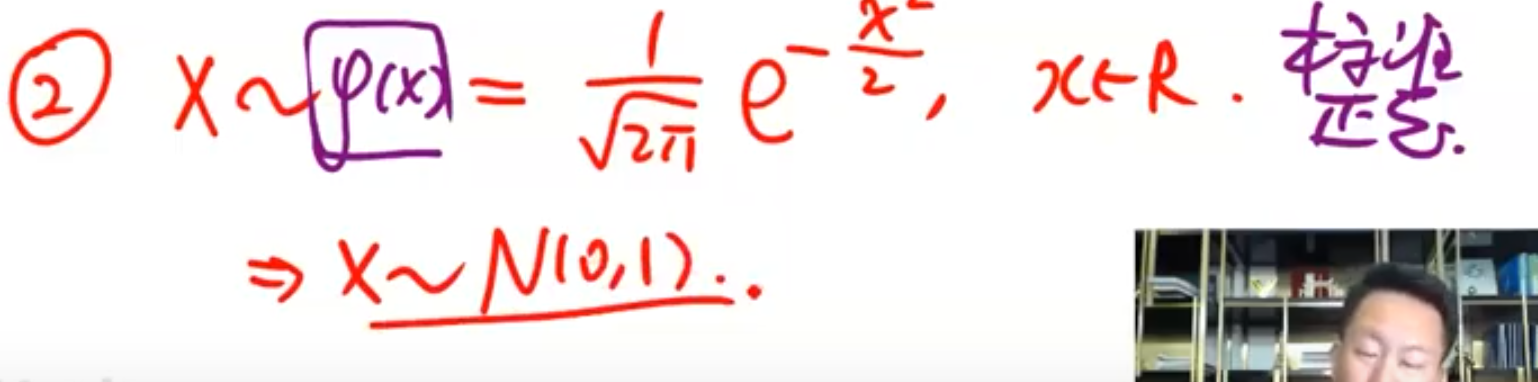 ② X ~ φ(x) = 1/√2π e^(-x²/2), x∈R. 标准正态.
⇒ X ~ N(0,1).